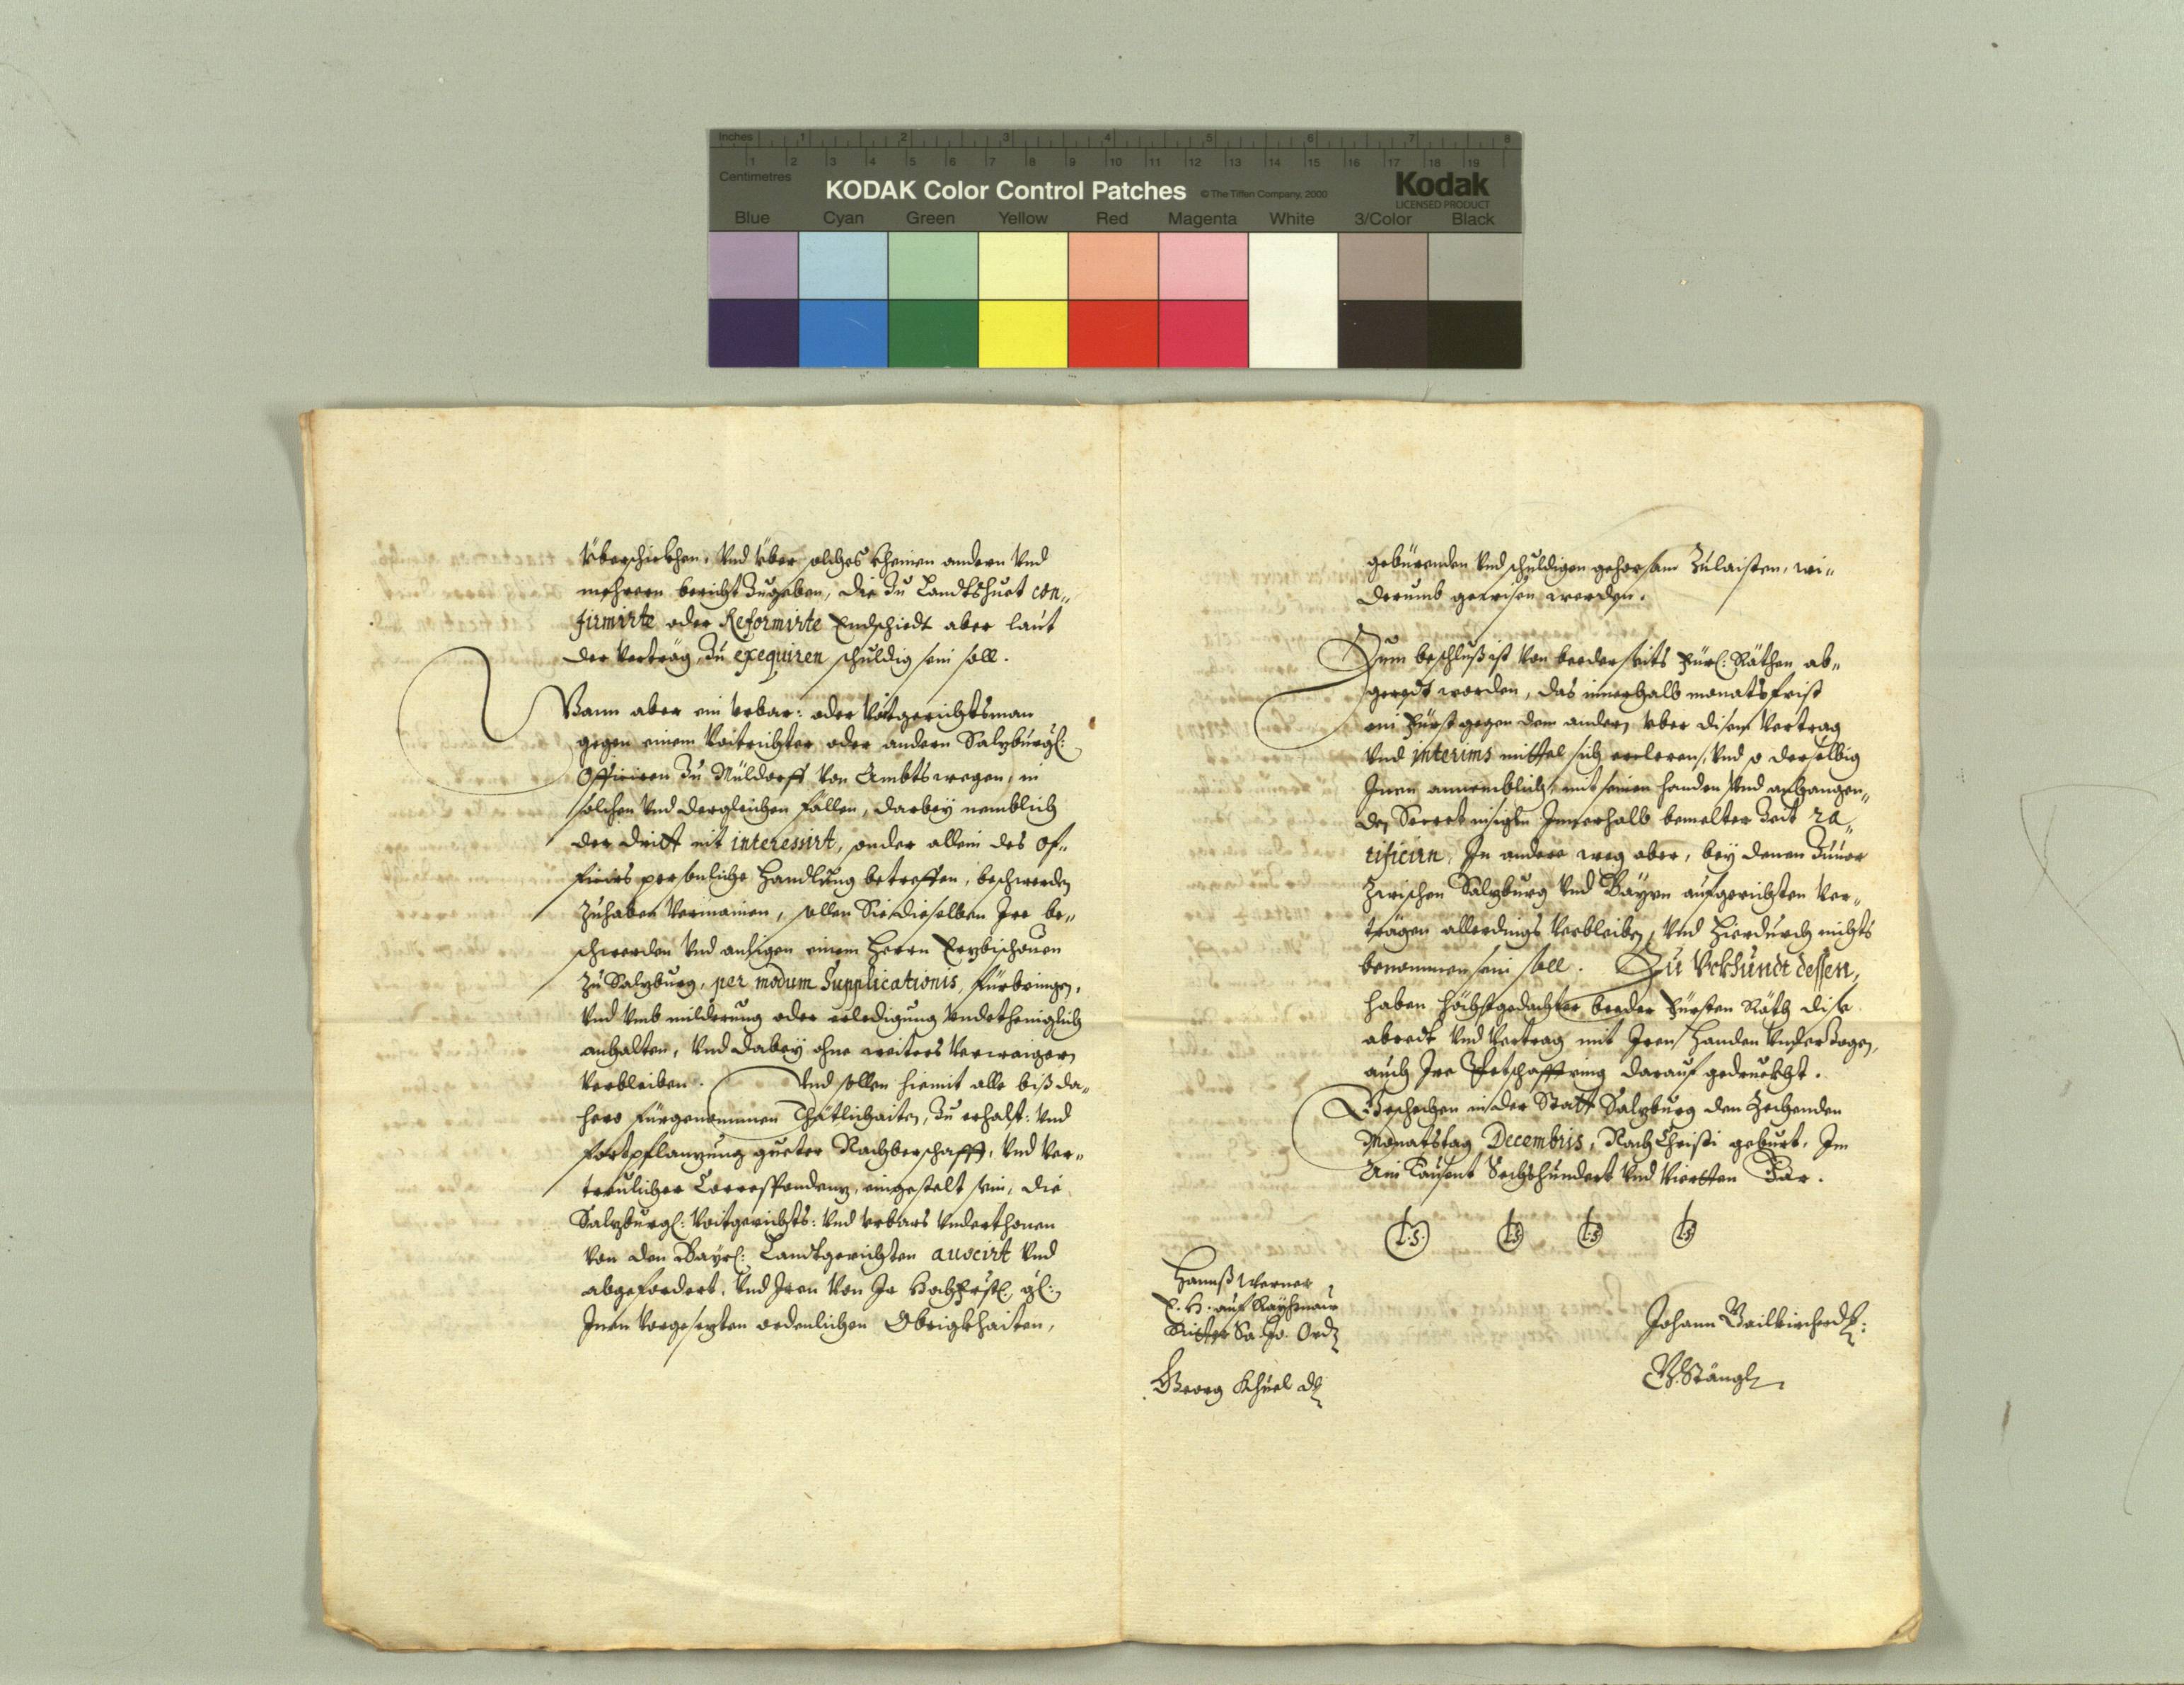 Inches 1 2 3 4 5 6 7 8
1 2 3 4 5 6 7 8 9 10 11 12 13 14 15 16 17 18 19
Centimetres
KODAK Color Control Patches © The Tiffen Company, 2000 Kodak
LICENSED PRODUCT
Blue Cyan Green Yellow Red Magenta White 3/Color Black
Überschickhen, Vnd Über solches kheinen andern Vnd
mehrern bericht Zugeben, die Zu Landtshuet con„
firmirte oder Reformirte Endschiedt aber laut
der Verträg, Zu exequiren schuldig sein soll.
Wann aber ein Vrbar: oder Voitgerichtsman
gegen einem Voitrichter oder andern Salzburgl:
Officiren Zu Müldorff Von Ambts wegen, in
solchen Vnd dergleichen Fällen, darbey nemblich
der dritt nit interessirt, sonder allein des Of„
ficirs persönliche Handlung betreffen, beschwerden
Zuhaben Vermainen, sollen Sie dieselben Ire be„
schwerden Vnd anligen einem Herrn Erzbischouen
Zu Salzburg, per modum Supplicationis, fürbringen,
Vnd Vmb milderung oder erledigung Vndertheniglich
anhalten, Vnd dabey ohne weiters Verwaigern
Verbleiben. Vnd sollen hiemit alle biß da„
hero fürgenommen Thätlichaiten, Zu erhalt: Vnd
fortpflanzung gueter Nachberschafft, Vnd Ver„
treulicher Correspondenz, eingestelt sein, die
Salzburgl: Voitgerichts: Vnd Vrbars Vnderthonen
Von den Bayrl: Landtgerichten auocirt Vnd
abgefordert, Vnd Iren Von Ir Hochfrstl. gl:
Inen Vorgesezten ordenlichen Obrigkhaiten,
gebürenden Vnd schuldigen gehorsam Zulaisten, wi„
derumb gewisen werden.
Zum beschluß ist Von beederseits Fürl: Räthen ab„
geredt worden, das innerhalb monatsfrist
ein Fürst gegen dem andern Vber disem Vertrag
Vnd interims mittel sich ercleren, Vnd so derselbig
Inen annemblich, mit seinen handen Vnd anhangen„
den Secret insigln Innerhalb bemelter Zeit ra„
tificirn, In andere weg aber, bey denen Zuuor
Zwischen Salzburg Vnd Bayrn aufgerichten Ver„
trägen allerdings Verbleiben, Vnd hierdurch nichts
benommen sein soll. Zu Vrkhundt dessen,
haben höchstgedachter beeder Fürsten Räth dise
abredt Vnd Vertrag mit Iren Handen Vnderzogen,
auch Ire Petschafftring darauf gedruckht.
Geschehen in der Statt Salzburg den Zechenden
Monatstag Decembris, Nach Christi geburt, Im
Ain Tausent Sechshundert Vnd Viertten Jar.
L.S. L.S. L.S. L.S.
Hannß Werner
F. H. auf
Ritter Sa. Jo. Ord
Georg Khuel D
Johann Gailkircher D:
G. Stängl